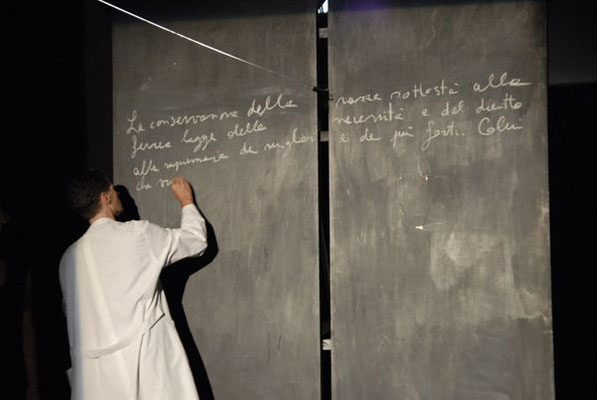 La conservazione della razza sottostà alla
ferrea legge della necessità e del diritto
alla supremazia dei migliori e dei più forti. Colui
che vu